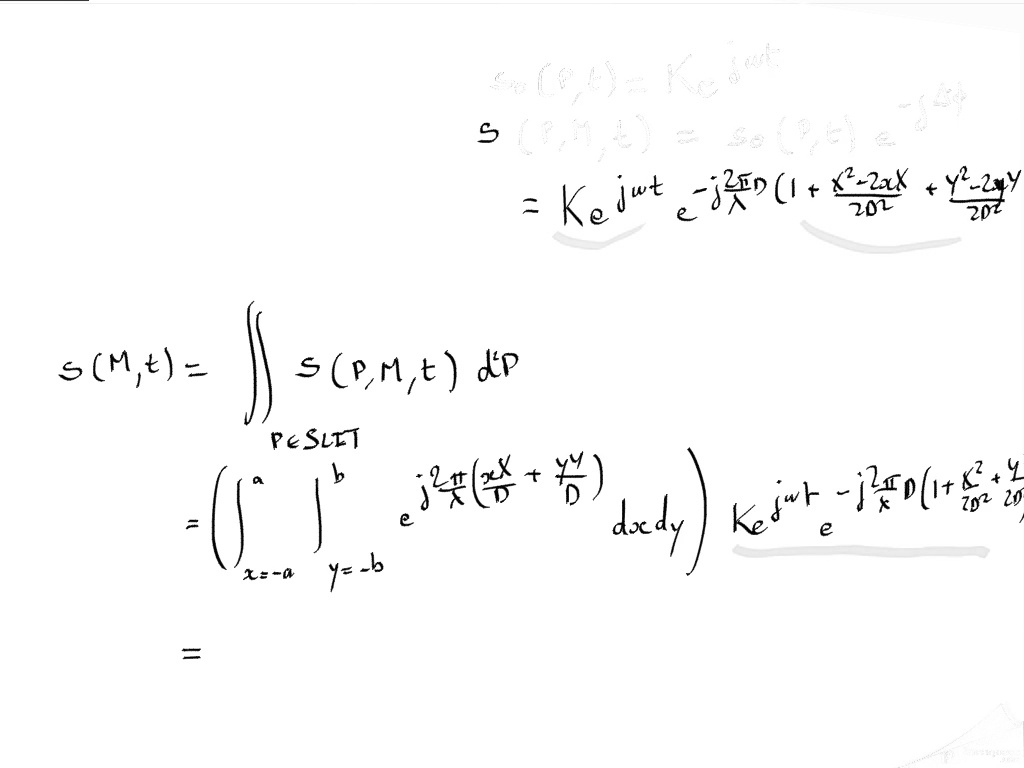 s₀(P,t) = K e^{jωt}
s(P,M,t) = s₀(P,t) e^{-jΔφ}
= K e^{jωt} e^{-j\frac{2π}{λ}D(1 + \frac{X²-2xX}{2D²} + \frac{Y²-2yY}{2D²}}
s(M,t) = ∬_{P∈SLIT} s(P,M,t) d²P
= (∫_{x=-a}^{a} ∫_{y=-b}^{b} e^{j\frac{2π}{λ}(\frac{xX}{D} + \frac{yY}{D})} dxdy) K e^{jωt} e^{-j\frac{2π}{λ}D(1 + \frac{X²}{2D²} + \frac{Y}{2D}}
=